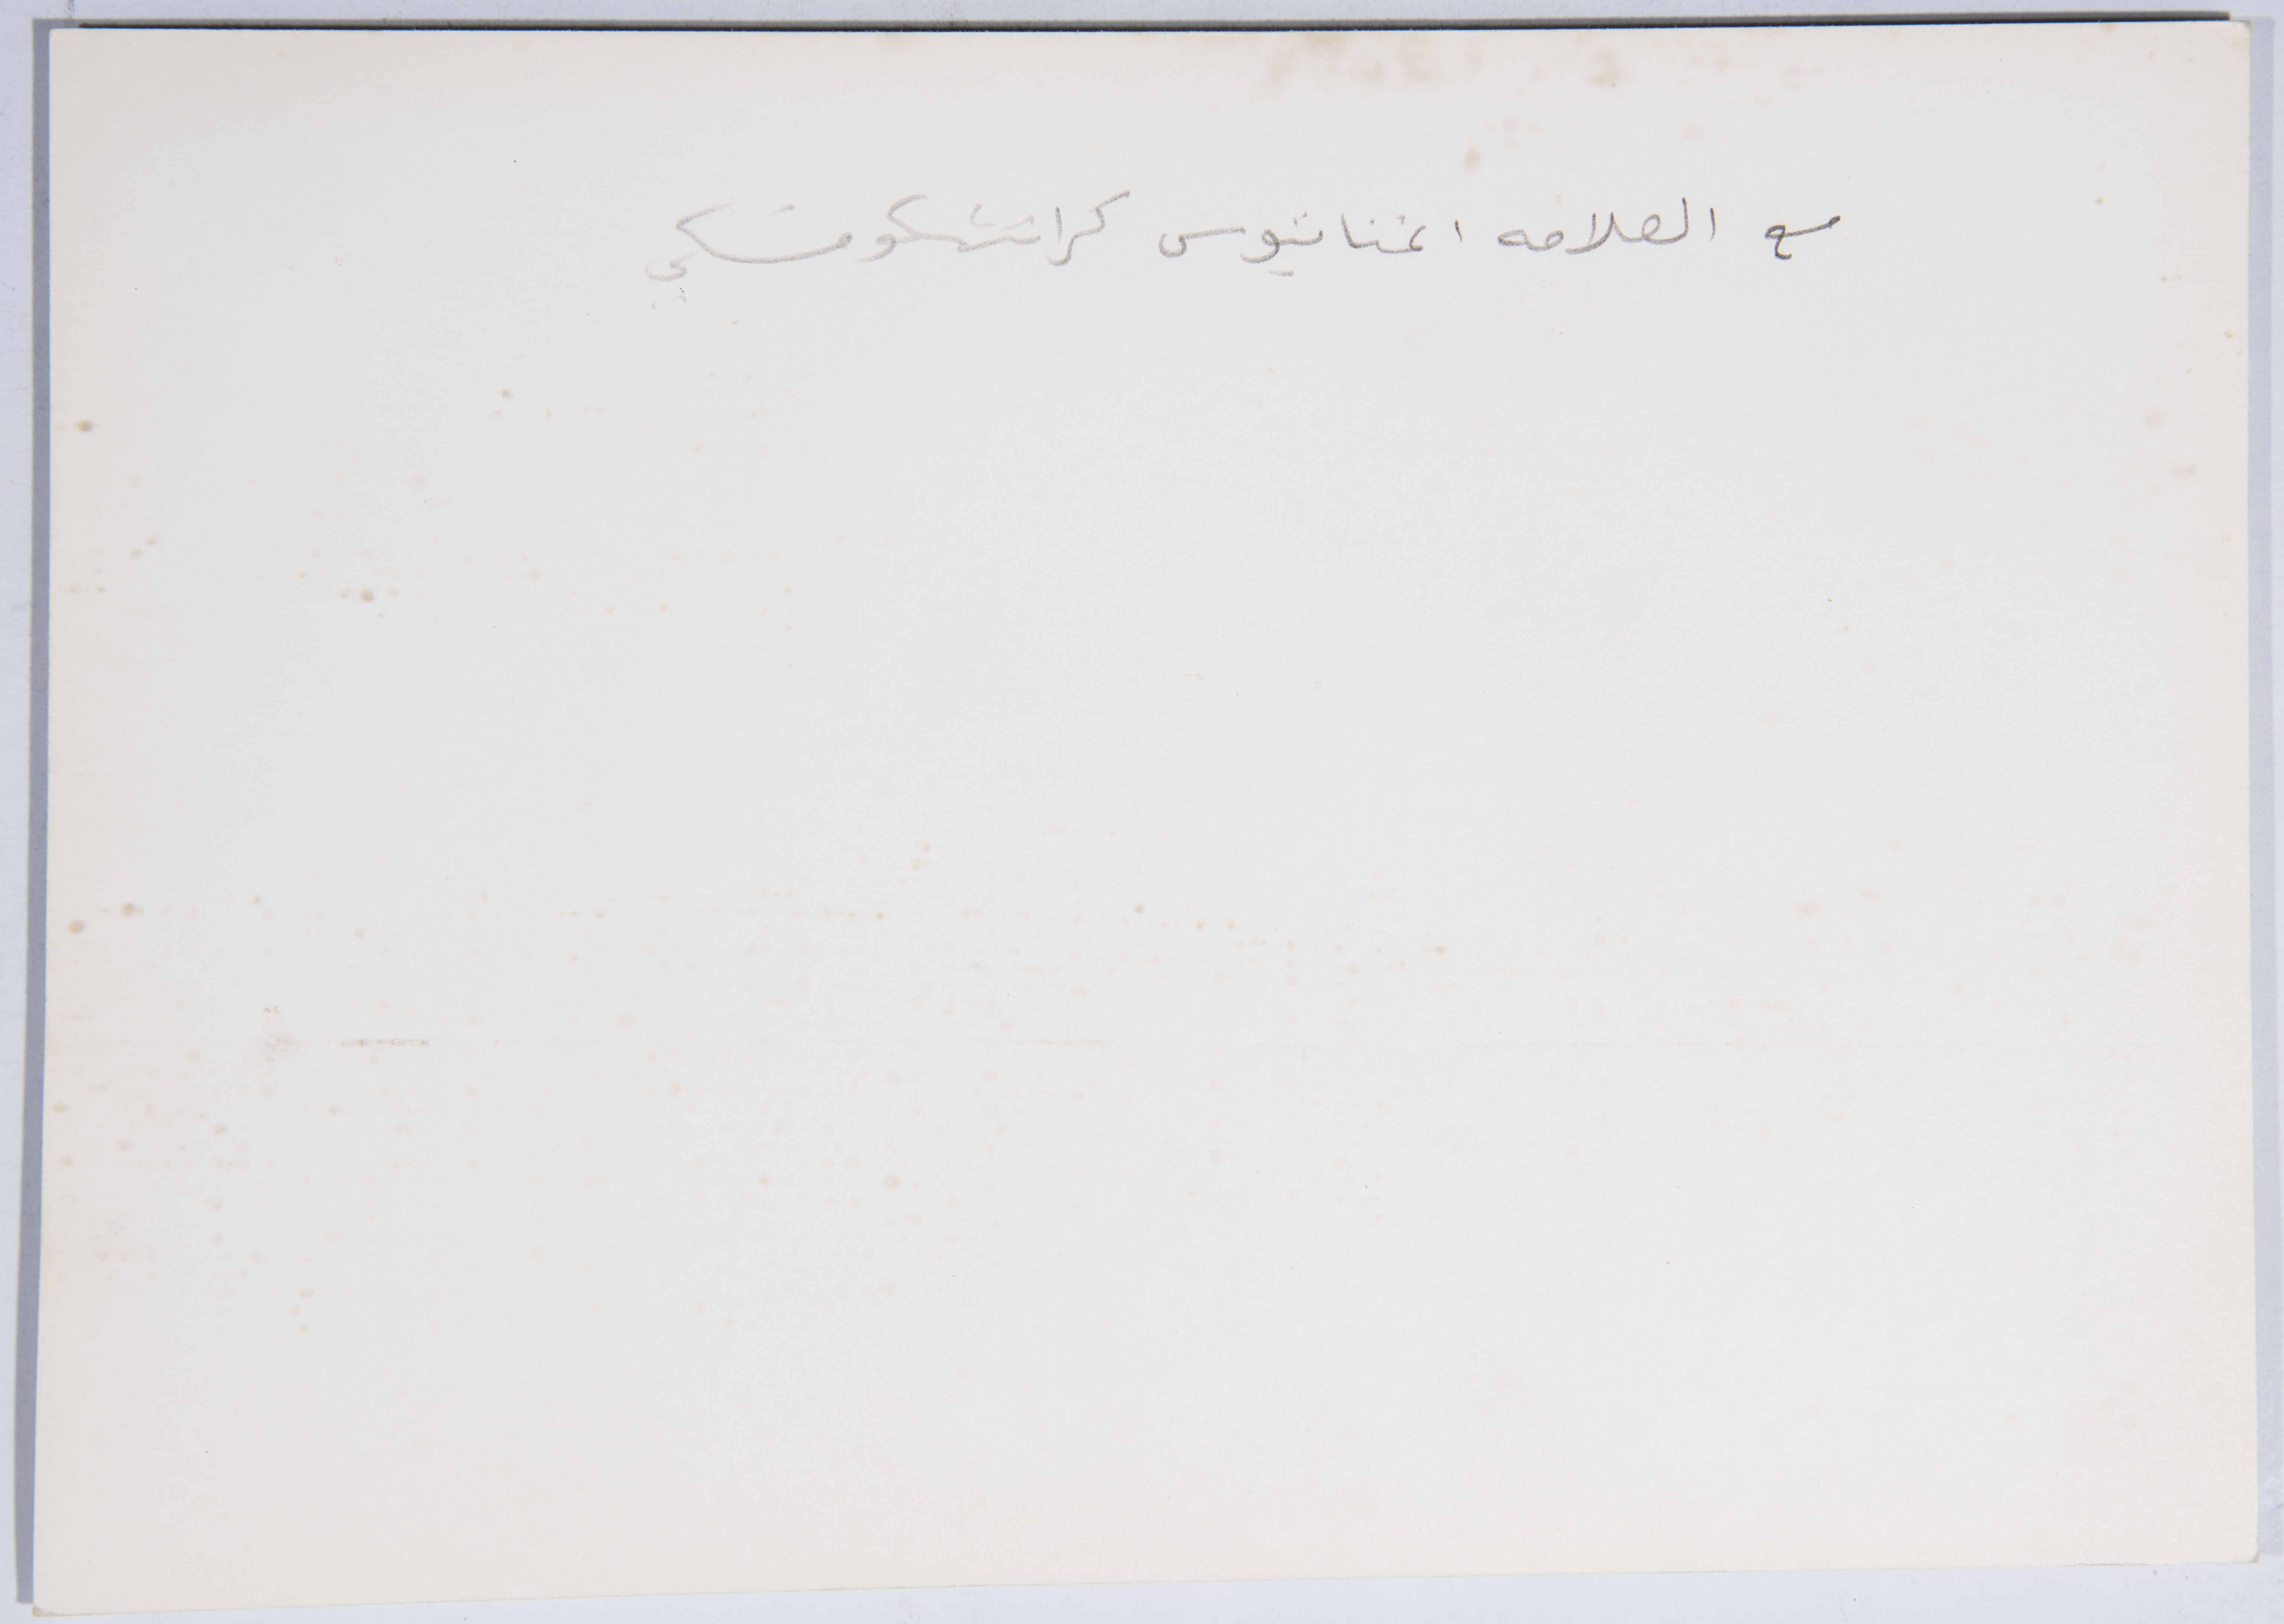 مع العلامه اغناتيوس كراتشكوفسكي